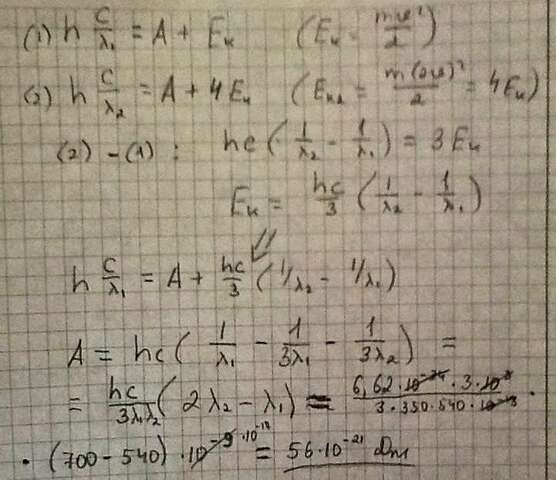 (1) h c/λ₁ = A + Eк (Eк = mυ²/2)
(2) h c/λ₂ = A + 4Eк (Eк2 = m(2υ)²/2 = 4Eк)
(2) - (1) : hc(1/λ₂ - 1/λ₁) = 3Eк
Eк = hc/3 (1/λ₂ - 1/λ₁)
h c/λ₁ = A + hc/3 (1/λ₂ - 1/λ₁)
A = hc( 1/λ₁ - 1/3λ₁ - 1/3λ₂ ) =
= hc/3λ₁λ₂ ( 2λ₂ - λ₁ ) = 6,62·10⁻³⁴·3·10⁸ / 3·350·540·10⁻¹⁸ ·
· (700-540) · 10⁻⁹ = 56·10⁻²¹ Дж